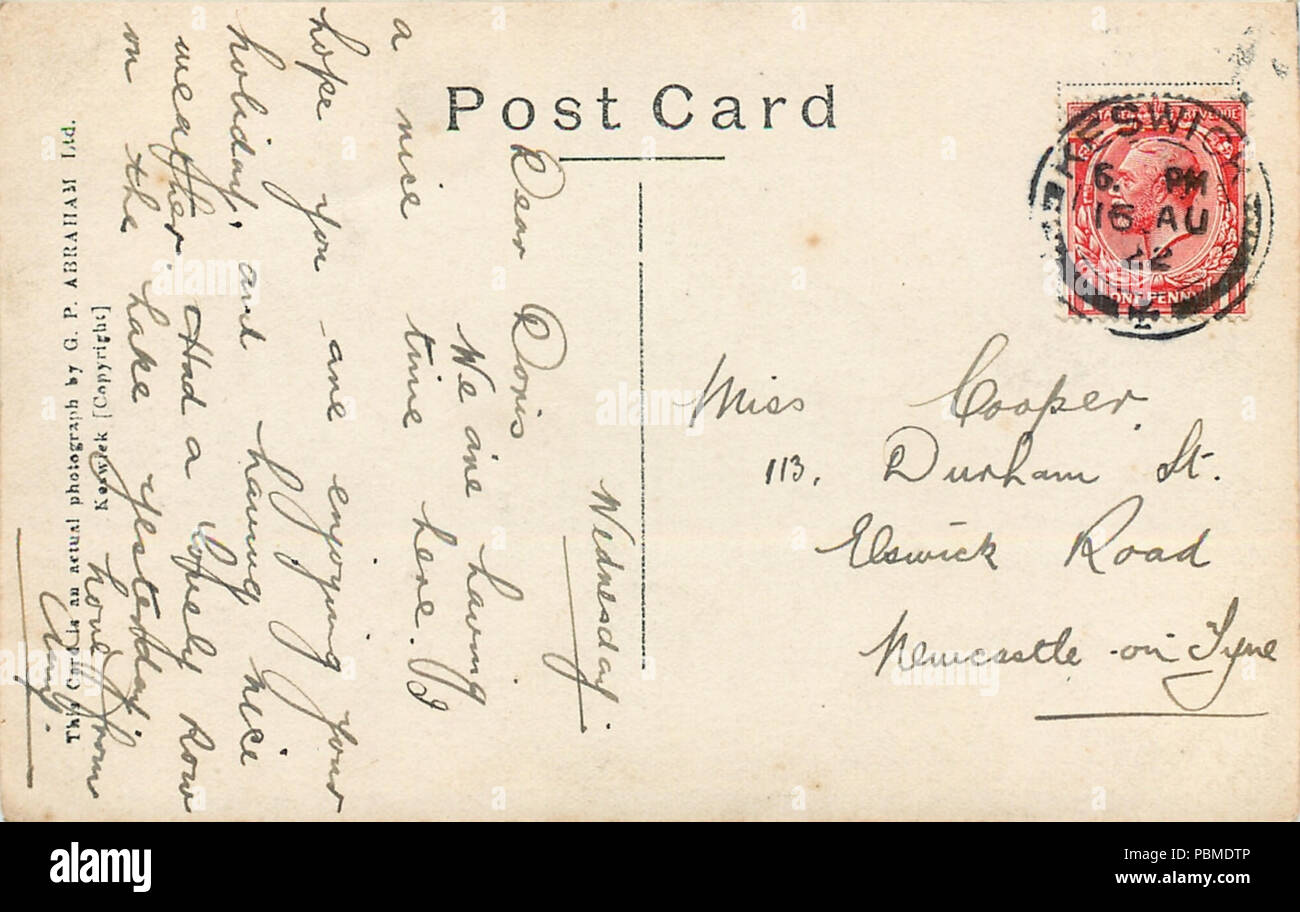 Post Card
Wednesday
Dear Doris
We are having
a nice time here. I
hope you are enjoying your
holiday, and having nice
weather. Had a lovely row
on the Lake yesterday.
Love from
Amy.
This Card is an actual photograph by G. P. ABRAHAM Ltd.
Keswick [Copyright]
KESWICK
6. PM
16 AU
22
ONE PENNY
Miss Cooper,
113, Durham St.
Elswick Road
Newcastle-on-Tyne
a alamy
alamy
Image ID: PBMDTP
www.alamy.com